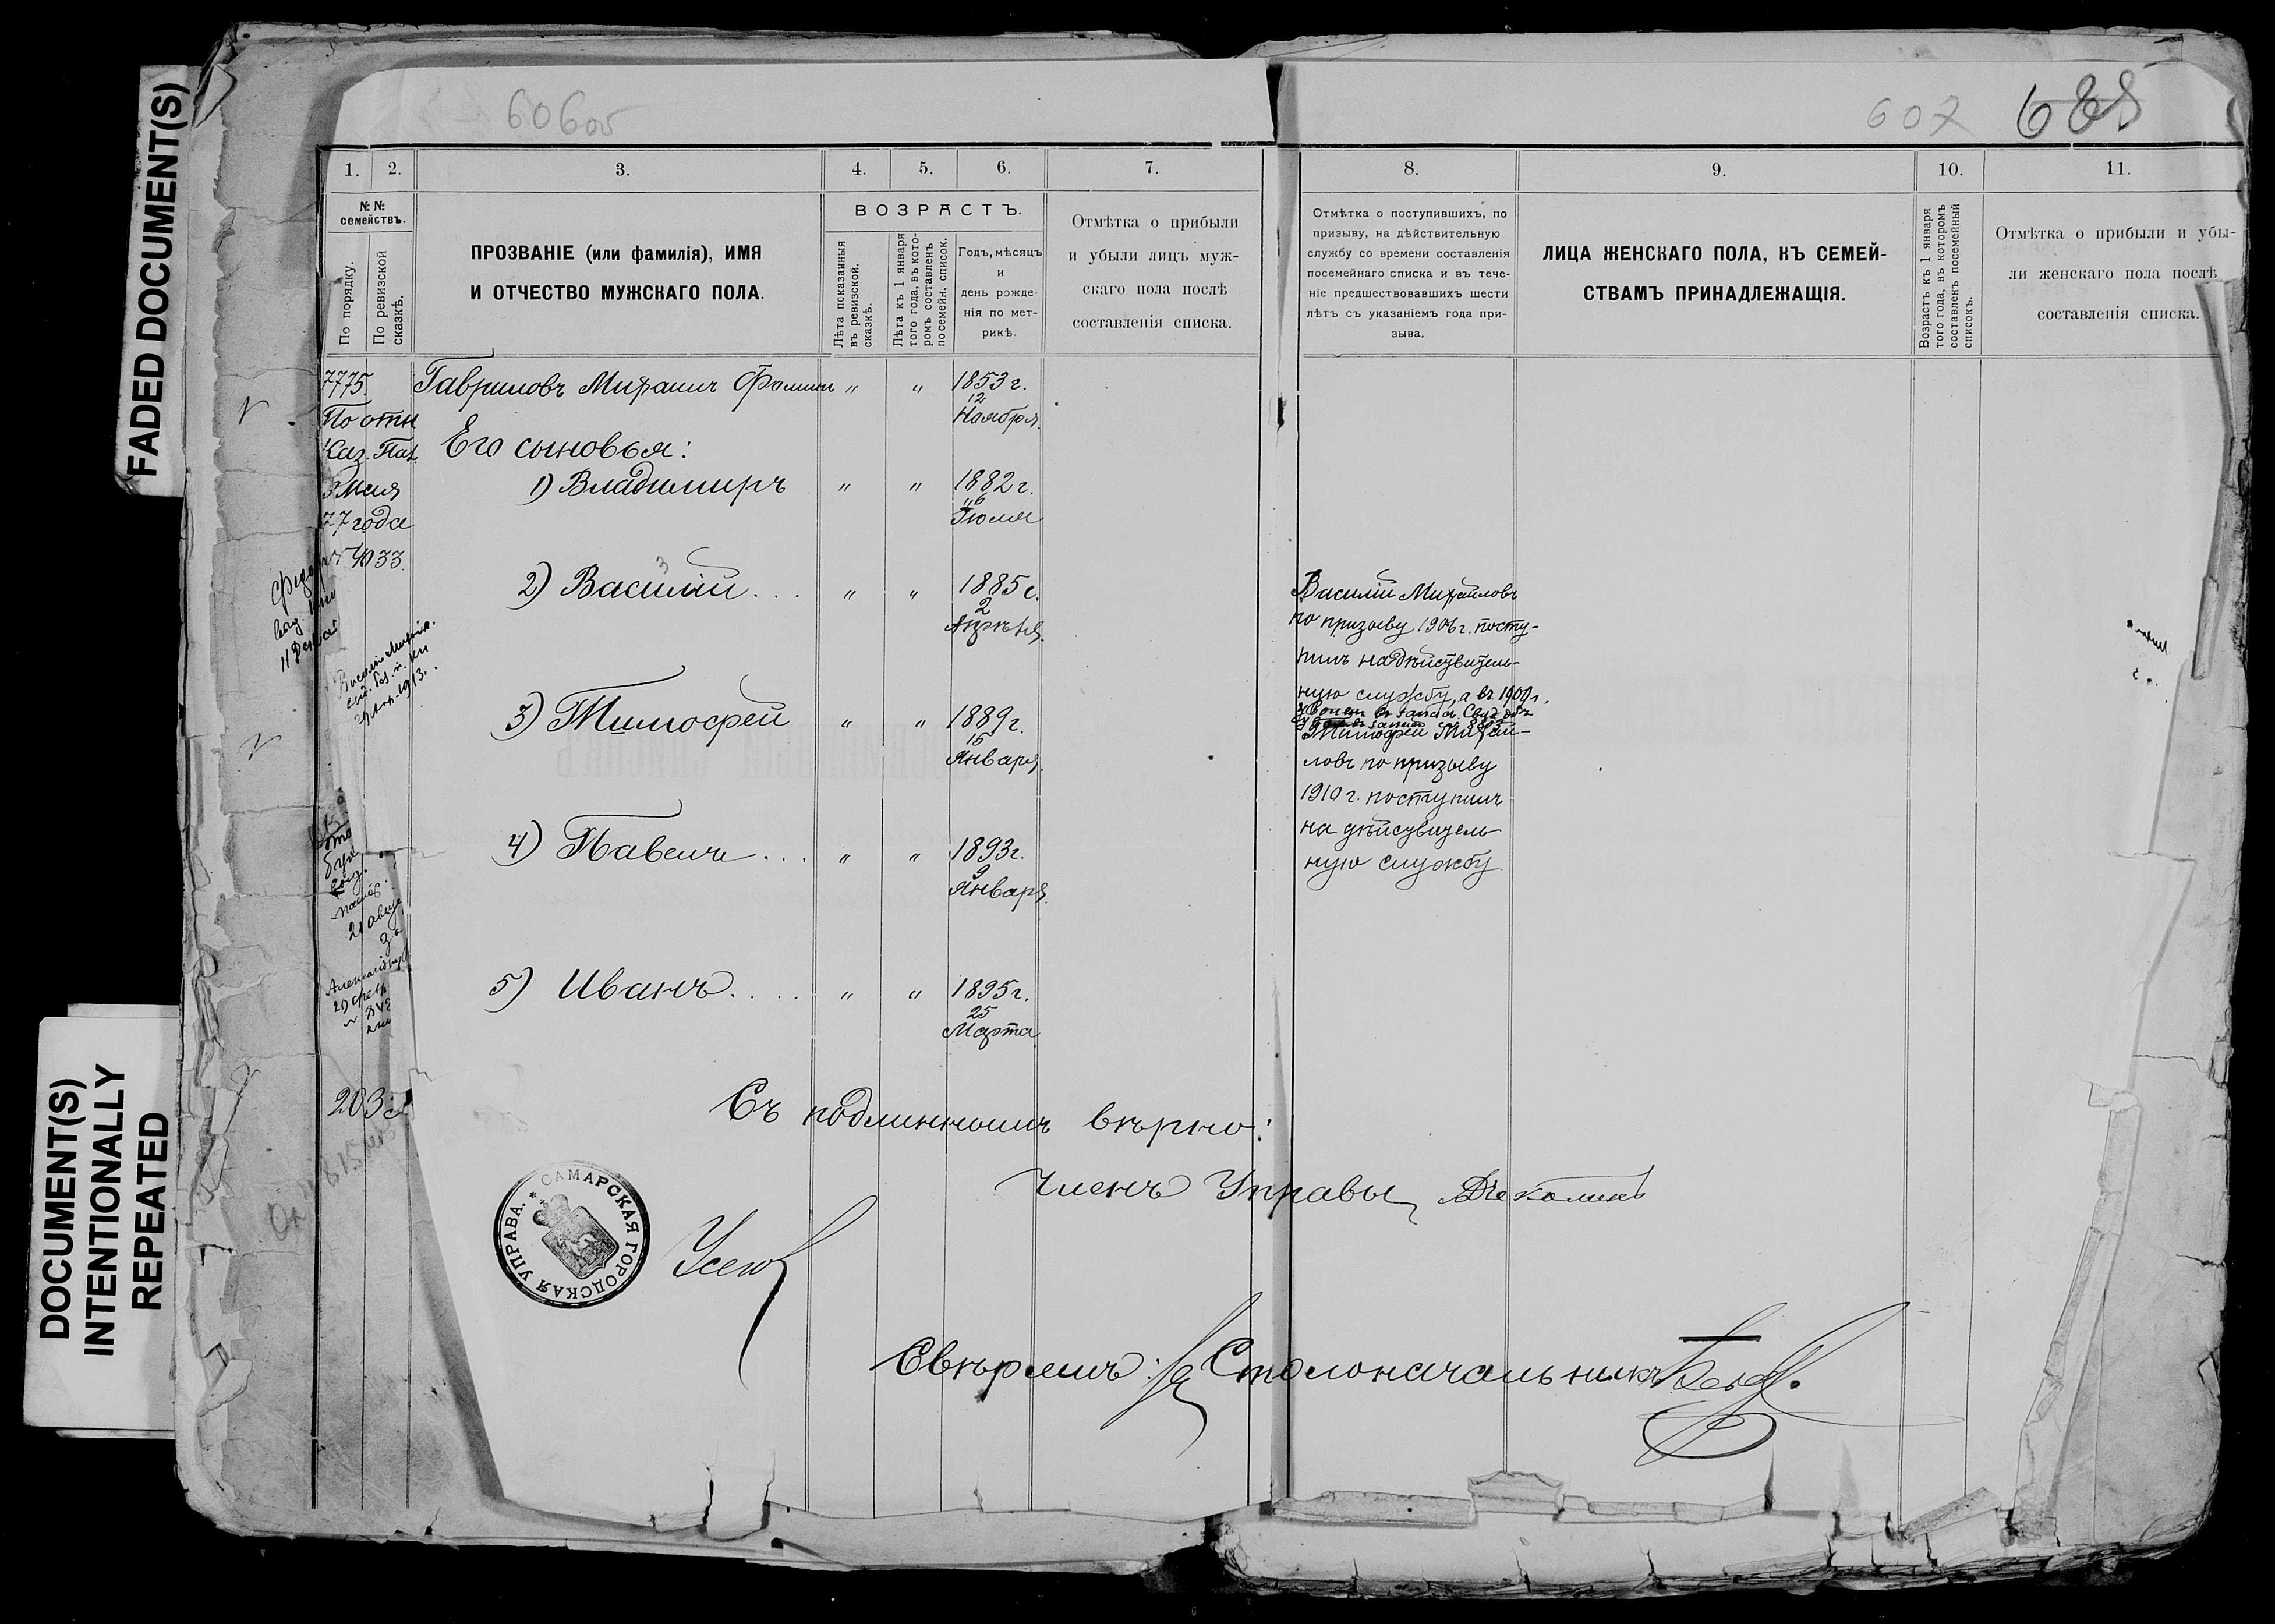 FADED DOCUMENT(S)
DOCUMENT(S)
INTENTIONALLY
REPEATED
607
1.
2.
3.
4.
5.
6.
7.
№ №
семействъ.
По порядку.
По ревизской
сказкѣ.
ПРОЗВАНІЕ (или фамилія), ИМЯ
И ОТЧЕСТВО МУЖСКАГО ПОЛА.
ВОЗРАСТЪ.
Лѣта показанныя
въ ревизской.
сказкѣ.
Лѣта къ 1 января
того года, въ кото-
ромъ составленъ
посемейн. список.
Годъ, мѣсяцъ
и
день рожде-
нія по мет-
рикѣ.
Отмѣтка о прибыли
и убыли лицъ муж-
скаго пола послѣ
составленія списка.
8.
9.
10.
11.
Отмѣтка о поступившихъ, по
призыву, на дѣйствительную
службу со времени составленія
посемейнаго списка и въ тече-
ніе предшествовавшихъ шести
лѣтъ съ указаніемъ года при-
зыва.
ЛИЦА ЖЕНСКАГО ПОЛА, КЪ СЕМЕЙ-
СТВАМЪ ПРИНАДЛЕЖАЩІЯ.
Возрастъ къ 1 января
того года, въ которомъ
составленъ посемейный
списокъ.
Отмѣтка о прибыли и убы-
ли женскаго пола послѣ
составленія списка.
7775. Гавриловъ Михаилъ Фомин " " 1853 г.
12
Ноября.
По отн
Каз. Пал.
3 Мая
77 года
№ 4033.
Его сыновья:
1) Владимиръ " " 1882 г.
Іюля
2) Василій . . . " " 1885 г.
2
Апрѣля.
3) Тимофей " " 1889 г.
15
Января.
4) Павелъ . . . " " 1893 г.
9
Января
5) Иванъ . . . . " " 1895 г.
25
Марта
Василій Михайловъ
по призыву 1906 г. посту-
пилъ на дѣйствитель-
ную службу, а въ
Тимофей Михай-
ловъ по призыву
1910 г. поступилъ
на дѣйствитель-
ную службу
Съ подлиннымъ вѣрно:
Членъ Управы
САМАРСКАЯ ГОРОДСКАЯ УПРАВА.
Свѣрялъ: Столоначальникъ